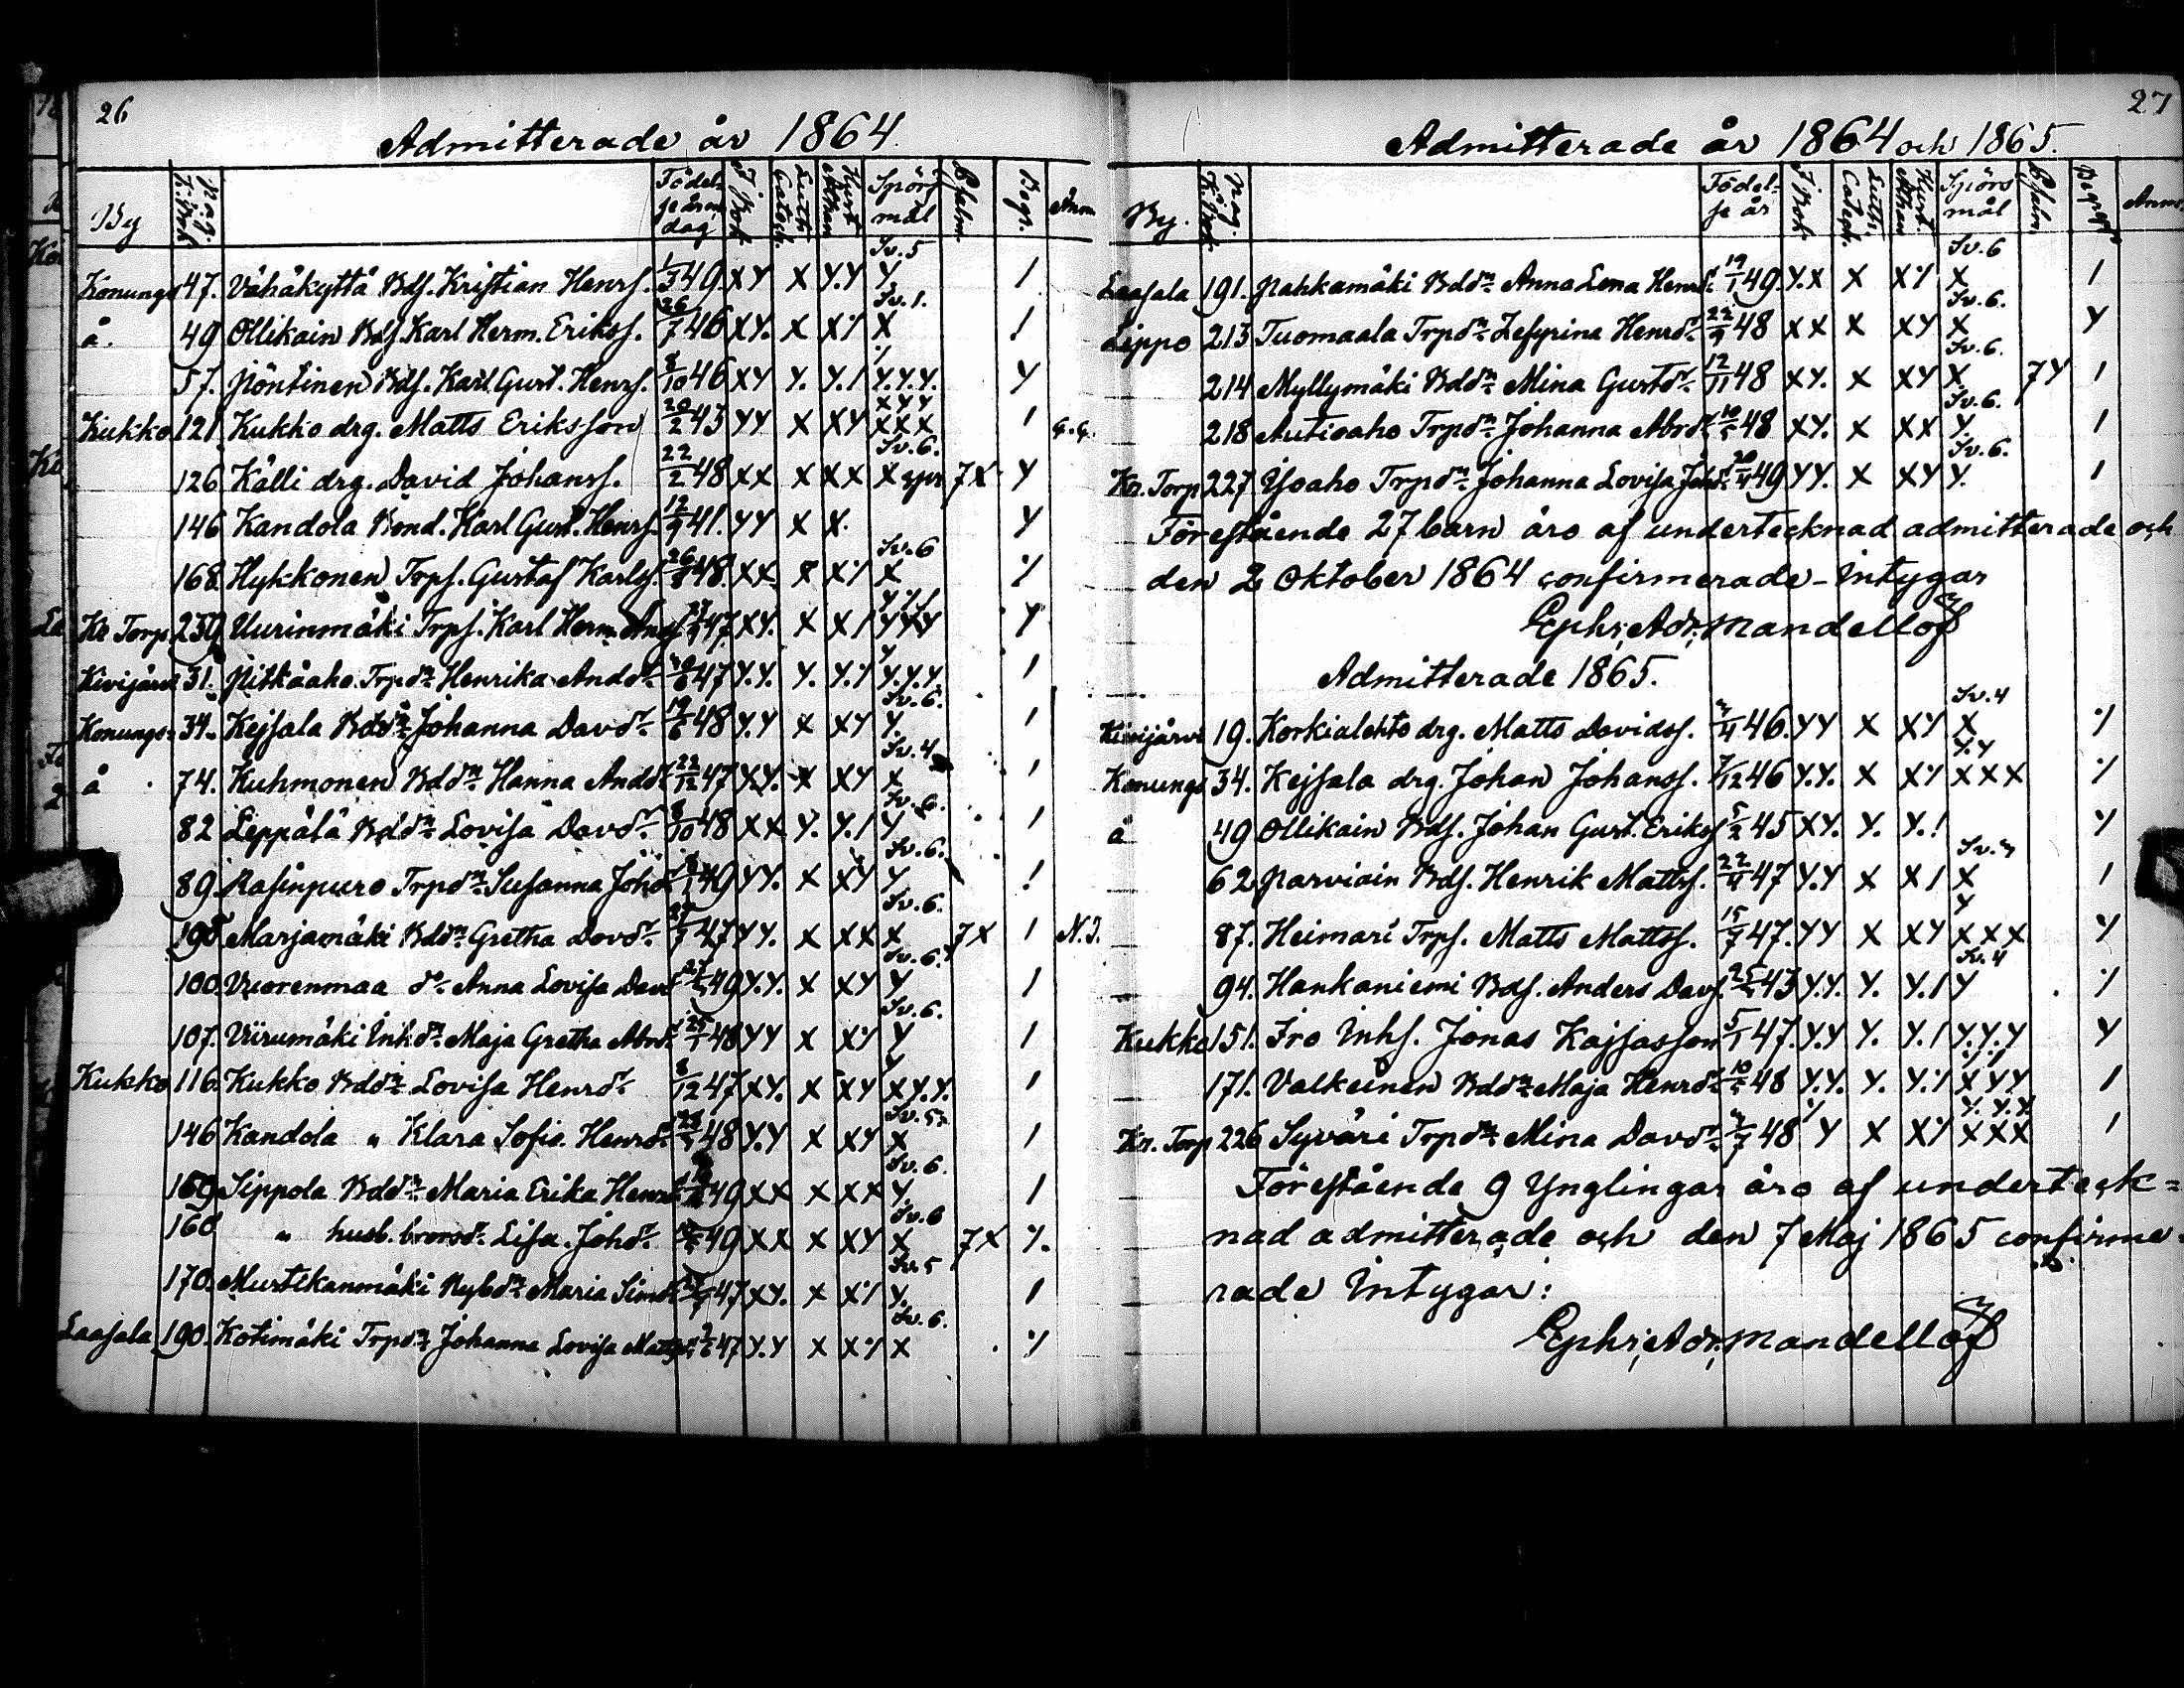 26
Admitterade år 1864.
By Pag. i K. Bok Födelseår och dag I Bok Luth. Catech. Hust. Athan Spörsmål Psalm Begr. Anm
Sv. 5
Konungs 47. Vähäkyttä Bds. Kristian Henrs. 1/3 49. XY X Y.Y Y 1
Sv. 1.
å. 49 Ollikain Bds. Karl Herm. Erikss. 26/7 46 XY. X X% X 1
57. Pöntinen Bds. Karl Gust. Henrs. 8/10 46 XY Y. Y.1 Y.Y.Y. Y
XYY
Kukko 121 Kukko drg. Matts Eriksson 20/2 43 YY X XY XXX 1
Sv. 6.
126 Källi drg. David Johanss. 22/2 48 XX X XX X 7X Y
146 Kandola Bond. Karl Gust. Henrs. 12/9 41. YY X X. Y
Sv. 6
168. Hykkonen Trps. Gustaf Karlss. 26/8 48. XX X X% X %
Kr. Torp 239 Uurinmäki Trps. Karl Herm. Ands. 47. XY. X X1 YYY Y
Kivijärvi 31. Pitkäaho Trpdr Henrika Anddr 47 Y.Y. Y. Y.% Y.Y.Y. 1
Sv. 6.
Konungs= 34. Kejsala Bddr Johanna Davdr 19/6 48 Y.Y X XY Y. 1
Sv. 4
å 74. Kuhmonen Bddr Hanna Anddr 22/12 47 XY. X XY X 1
Sv. 6.
82 Leppälä Bddr Lovisa Davdr 8/10 48 XX Y. Y.1 Y 1
Sv. 6.
89. Rasinpuro Trpdr Susanna Johdr 49 YY. X XY Y 1
Sv. 6.
198 Marjamäki Bddr Gretha Davdr 47 YY. X XX X 7X 1 N.J.
Sv. 6.
100. Vuorenmaa dr Anna Lovisa Davdr 49 Y.Y. X XY Y 1
Sv. 6.
107. Viirumäki Inhdr Maja Gretha Abrdr 48 YY X X% Y 1
Y
Kukko 116. Kukko Bddr Lovisa Henrdr 8/12 47 XY. X XY XY.Y. 1
Sv. 5
146 Kandola " Klara Sofia Henrdr 48 Y.Y X XY X 1
Sv. 6.
169 Sippola Bddr Maria Erika Henrdr 49 XX X XX Y. 1
Sv. 6
168 " husb. brorsdr Lisa Johdr 49 XX X XY X 7X Y.
Sv. 5
170. Murtikanmäki Nybdr Maria Simdr 47 XY. X X% Y. 1
Sv. 6.
Laasala 190. Kotimäki Trpdr Johanna Lovisa Mattsdr 47 Y.Y X X% X %
27
Admitterade år 1864 och 1865.
By. Pag. i K. Bok Födelseår I Bok Luth. Catech. Hust. Athan Spörsmål Psalm. Begrepp Anm.
Sv. 6
Laasala 191. Pahkamäki Bddr Anna Lena Henrdr 19/1 49. Y.X X X% X 1
Sv. 6.
Lippo 213 Tuomaala Trpdr Zefyrina Henrdr 22/9 48 XX X XY X Y
Sv. 6.
214 Myllymäki Bddr Mina Gustdr 12/11 48 XY. X XY X 7Y 1
Sv. 6.
218 Autioaho Trpdr Johanna Abrdr 48 XY. X XX Y. 1
Sv. 6.
Kr. Torp 227 Ysoaho Trpdr Johanna Lovisa Johdr 49 YY. X XY Y. 1
Förestående 27 barn äro af undertecknad admitterade och
den 2 Oktober 1864 confirmerade - Intygar
Ephr. Adr. Mandellöf
Admitterade 1865.
Sv. 4
Kivijärvi 19. Korkialehto drg. Matts Davidss. 46. YY X XY X %
Y.Y
Konungs 34. Kejsala drg. Johan Johanss. 46 Y.Y. X X% XXX %
å 49 Ollikain Bds. Johan Gust. Erikss. 5/2 45 XY. Y. Y.1 Y
62 Parviain Bds. Henrik Mattss. 22/4 47 Y.Y X X1 X 1
Y
87. Heimari Trps. Matts Mattss. 15/7 47. YY X XY XXX Y
Sv. 4
94. Hankaniemi Bds. Anders Davs. 43 Y.Y. Y. Y.1 Y %
Kukko 151. Iro Inhs. Jonas Kajsasson 5/1 47. Y.Y Y. Y.1 Y.Y.Y Y
171. Valkeinen Bddr Maja Henrdr 48 Y.Y. Y. Y.% XYY 1
Y. Y.Y
Kr. Torp 226 Syväri Trpdr Mina Davdr 48 Y X X% XXX 1
Förestående 9 Ynglingar äro af underteck=
nad admitterade och den 7 Maj 1865 confirme-
rade Intygar:
Ephr. Adr. Mandellöf